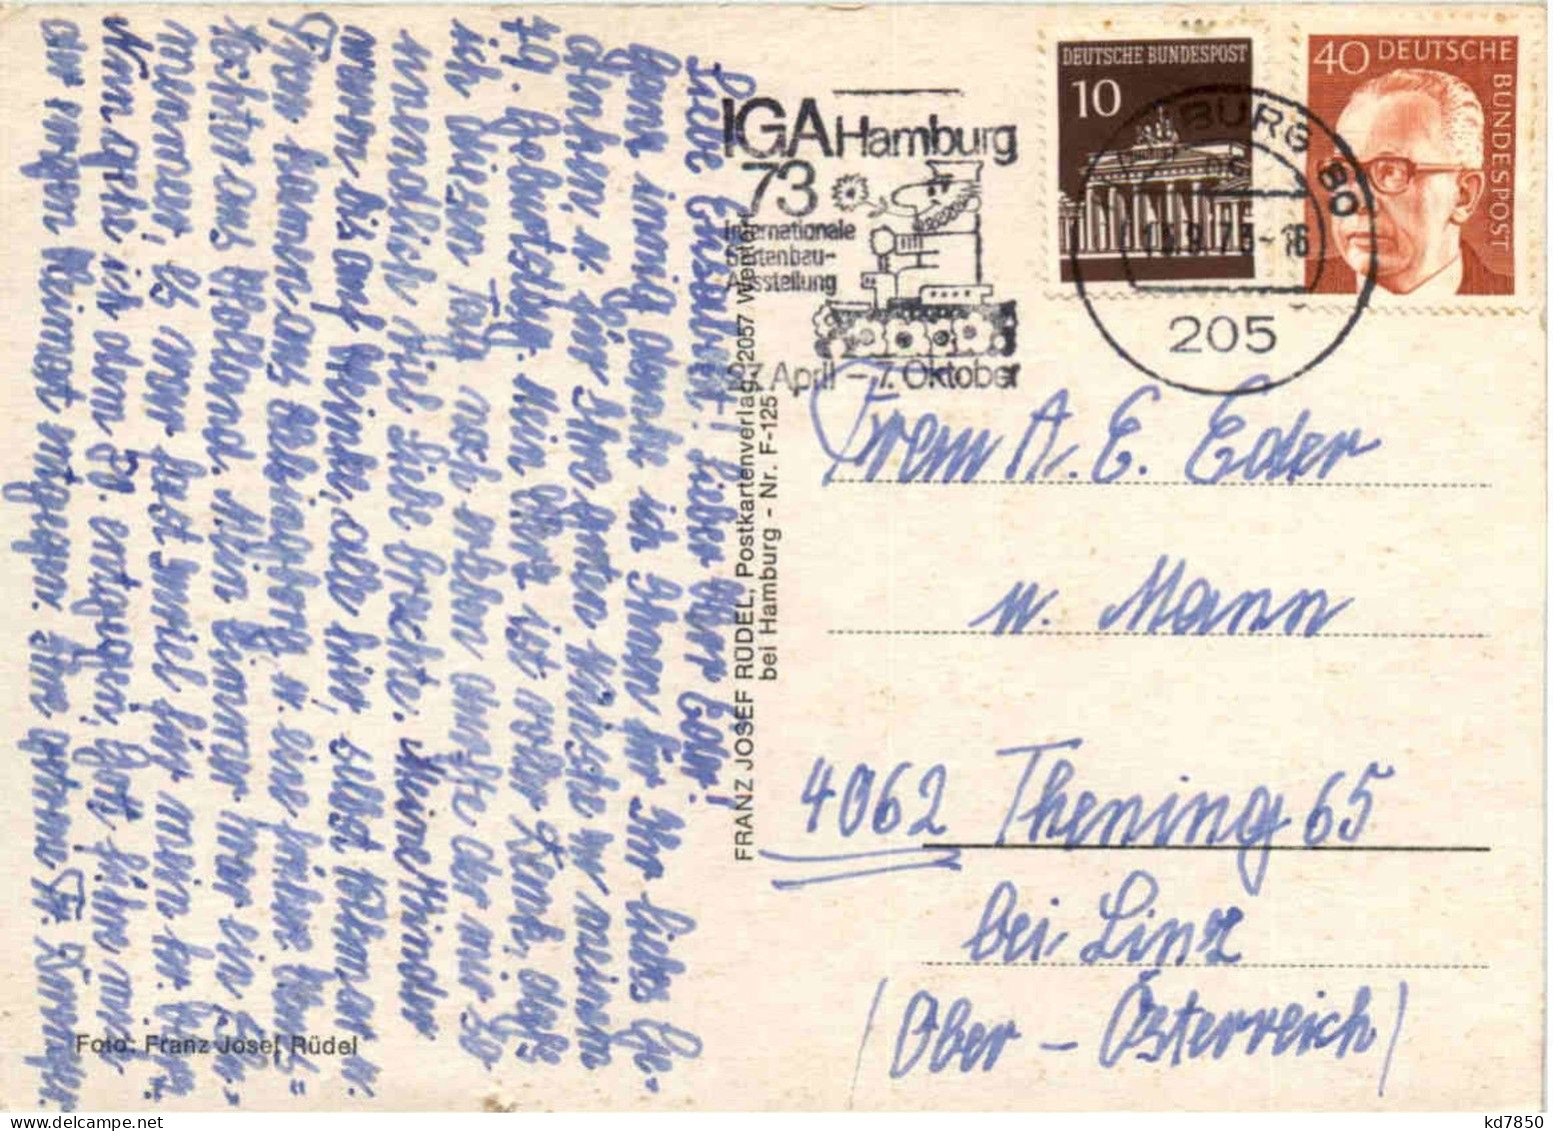 IGA Hamburg
73
Internationale
Gartenbau-
Ausstellung
27. April – 7. Oktober
DEUTSCHE BUNDESPOST
10
40 DEUTSCHE
BUNDESPOST
BURG 80
205
Frau A. E. Eder
u. Mann
4062 Thening 65
bei Linz
(Ober-Österreich)
FRANZ JOSEF RÜDEL, Postkartenverlag, 2057 Wentorf
bei Hamburg - Nr. F-125
Liebe Elisabeth! Lieber Herr Eder!
Ganz innig danke ich Ihnen für Ihr liebes Ge-
denken u. für Ihre guten Wünsche zu meinem
79. Geburtstag. Mein Herz ist voller Dank, daß
ich diesen Tag noch erleben durfte der mir so
unendlich viel Liebe brachte. Meine Kinder
waren bis auf Heinke, alle hier, selbst Volkmar u.
Frau kamen aus
Tochter aus Holland. Mein Zimmer war ein Blu-
menmeer, es war fast zuviel für mein
Nun gehe ich dem 80. entgegen, Gott führe mich
der ewigen Heimat entgegen. Ihre getreue
Foto: Franz Josef Rüdel
kd7850